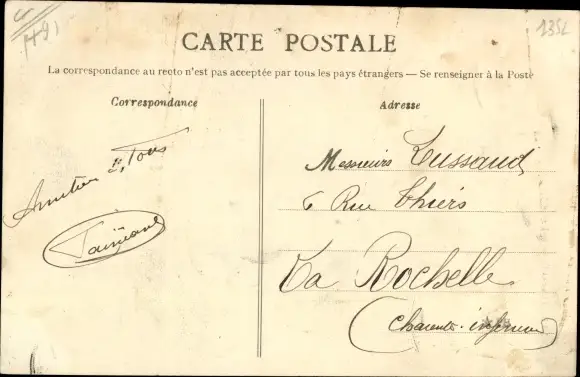 491
1352
CARTE POSTALE
La correspondance au recto n'est pas acceptée par tous les pays étrangers — Se renseigner à la Poste
Correspondance
Adresse
Messieurs Lussaud
6 Rue Thiers
La Rochelle
(Charente-inférieure)
à Tous